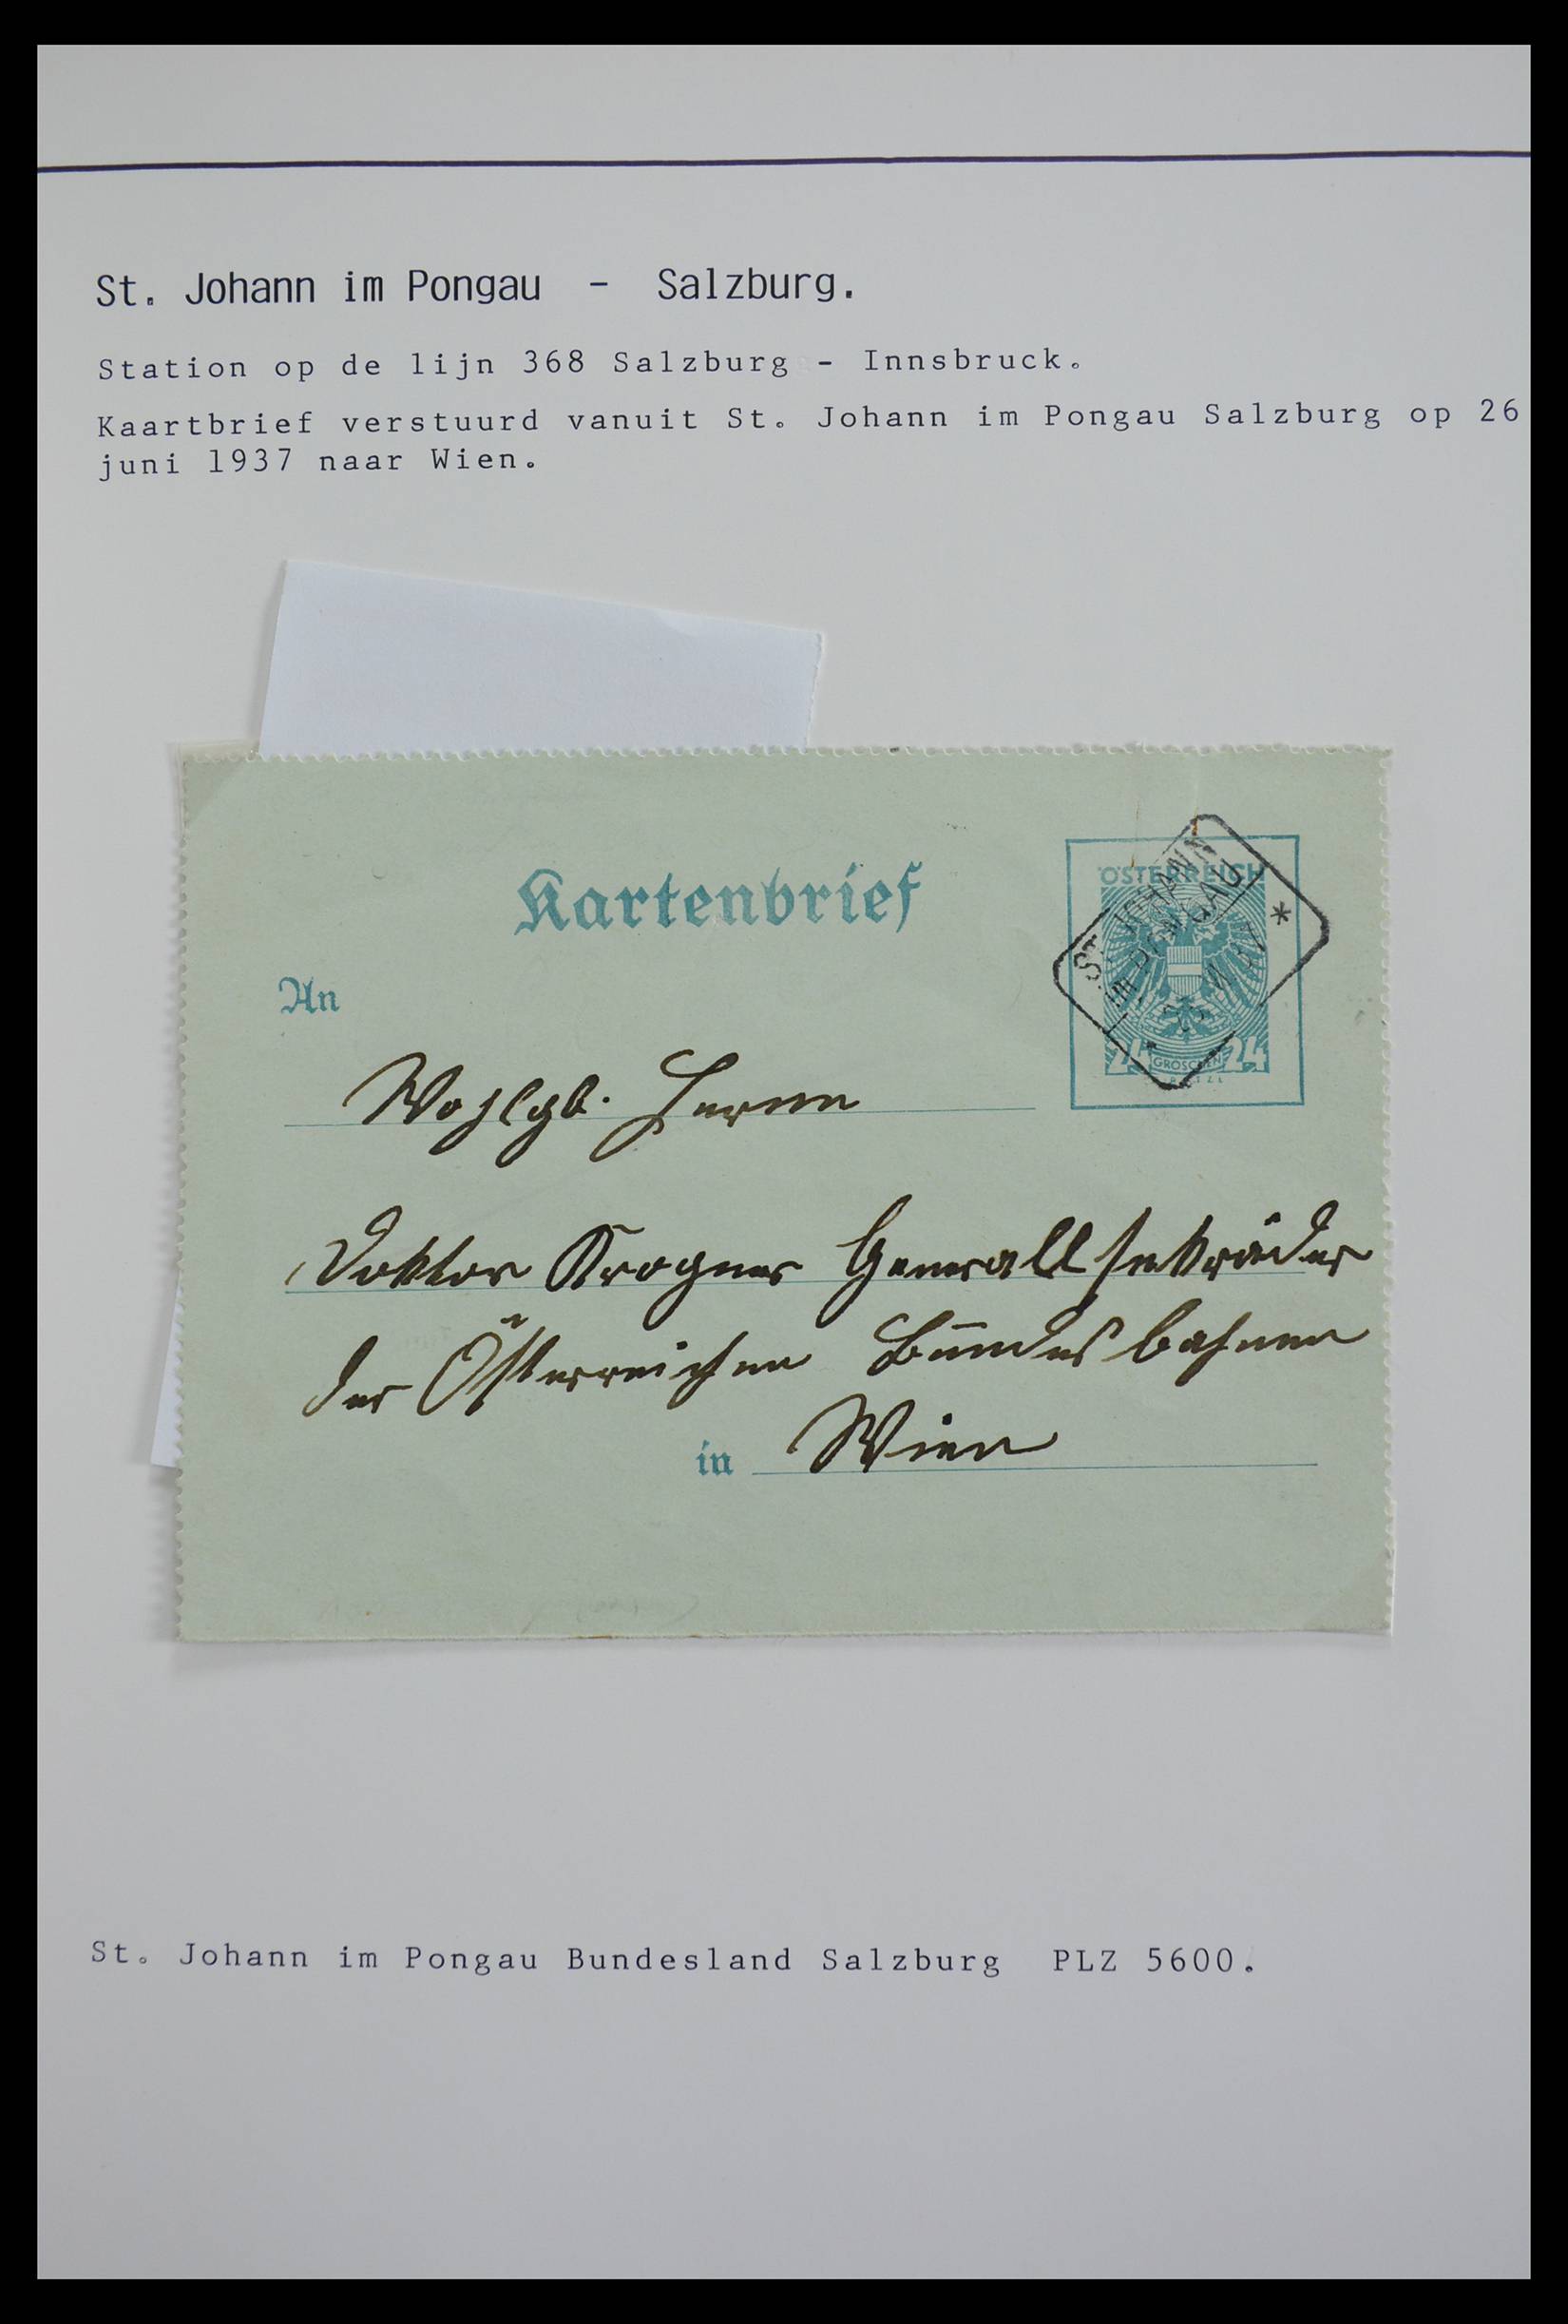 St. Johann im Pongau - Salzburg.
Station op de lijn 368 Salzburg - Innsbruck.
Kaartbrief verstuurd vanuit St. Johann im Pongau Salzburg op 26
juni 1937 naar Wien.
Kartenbrief
ÖSTERREICH
ST. JOHANN
IM PONGAU
*
24 GROSCHEN 24
An
Wohlgb. Herrn
Doktor Krogner Generallsekräder
der Österreichen Bundesbahnen
in Wien
St. Johann im Pongau Bundesland Salzburg PLZ 5600.